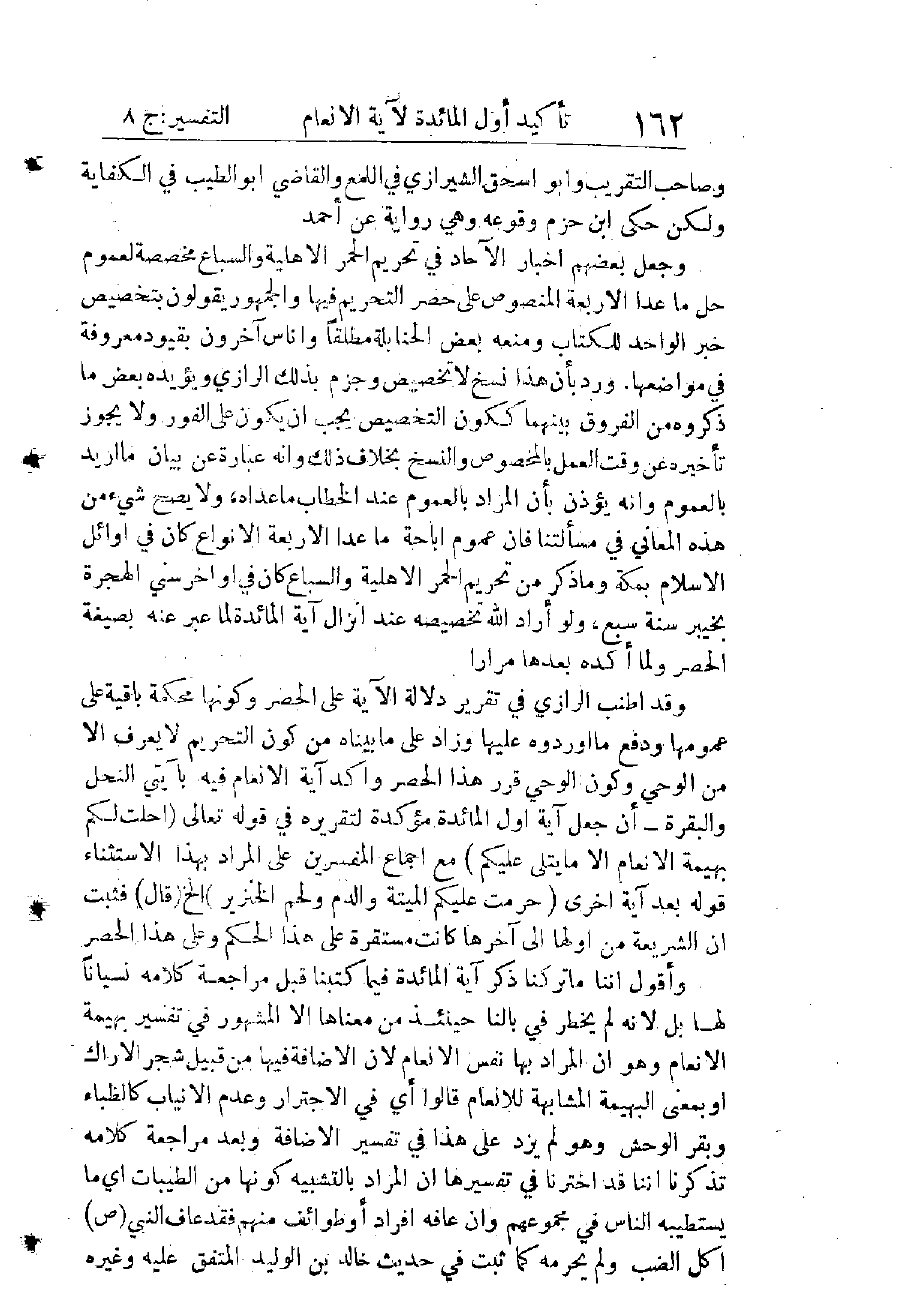 ١٦٢ تأكيد أول المائدة لآية الانعام التفسير: ج ٨
وصاحب التقريب وابو اسحق الشيرازي في اللمع والقاضي ابو الطيب في الكفاية
ولكن حكى ابن حزم وقوعه وهي رواية عن أحمد
وجعل بعضهم اخبار الآحاد في تحريم الحمر الاهلية والسباع مخصصة لعموم
حل ما عدا الاربعة المنصوص على حصر التحريم فيها والجمهور يقولون بتخصيص
خبر الواحد للكتاب ومنعه بعض الحنابلة مطلقاً واناس آخرون بقيود معروفة
في مواضعها. ورد بأن هذا نسخ لا تخصيص وجزم بذلك الرازي ويؤيده بعض ما
ذكروه من الفروق بينهما ككون التخصيص يجب ان يكون على الفور ولا يجوز
تأخيره عن وقت العمل بالمخصوص والنسخ بخلاف ذلك وانه عبارة عن بيان ما اريد
بالعموم وانه يؤذن بأن المراد بالعموم عند الخطاب ما عداه، ولا يصح شيء من
هذه المعاني في مسألتنا فان عموم اباحة ما عدا الاربعة الانواع كان في اوائل
الاسلام بمكة وما ذكر من تحريم الحمر الاهلية والسباع كان في اواخر سني الهجرة
بخيبر سنة سبع، ولو أراد الله تخصيصه عند انزال آية المائدة لما عبر عنه بصيغة
الحصر ولما أكده بعدها مرارا
وقد اطنب الرازي في تقرير دلالة الآية على الحصر وكونها محكمة باقية على
عمومها ودفع ما اوردوه عليها وزاد على ما بيناه من كون التحريم لا يعرف الا
من الوحي وكون الوحي قرر هذا الحصر واكد آية الانعام فيه بآيتي النحل
والبقرة – أن جعل آية اول المائدة مؤكدة لتقريره في قوله تعالى (احلت لكم
بهيمة الانعام الا ما يتلى عليكم) مع اجماع المفسرين على المراد بهذا الاستثناء
قوله بعد آية اخرى (حرمت عليكم الميتة والدم ولحم الخنزير) الخ (قال) فثبت
ان الشريعة من اولها الى آخرها كانت مستقرة على هذا الحكم وعلى هذا الحصر
وأقول اننا ما تركنا ذكر آية المائدة فيما كتبنا قبل مراجعة كلامه نسياناً
لها بل لانه لم يخطر في بالنا حينئذ من معناها الا المشهور في تفسير بهيمة
الانعام وهو ان المراد بها نفس الانعام لان الاضافة فيها من قبيل شجر الاراك
او بمعنى البهيمة المشابهة للانعام قالوا أي في الاجترار وعدم الانياب كالظباء
وبقر الوحش وهو لم يزد على هذا في تفسير الاضافة وبعد مراجعة كلامه
تذكرنا اننا قد اخترنا في تفسيرها ان المراد بالتشبيه كونها من الطيبات اي ما
يستطيبه الناس في مجموعهم وان عافه افراد أو طوائف منهم فقد عاف النبي (ص)
اكل الضب ولم يحرمه كما ثبت في حديث خالد بن الوليد المتفق عليه وغيره